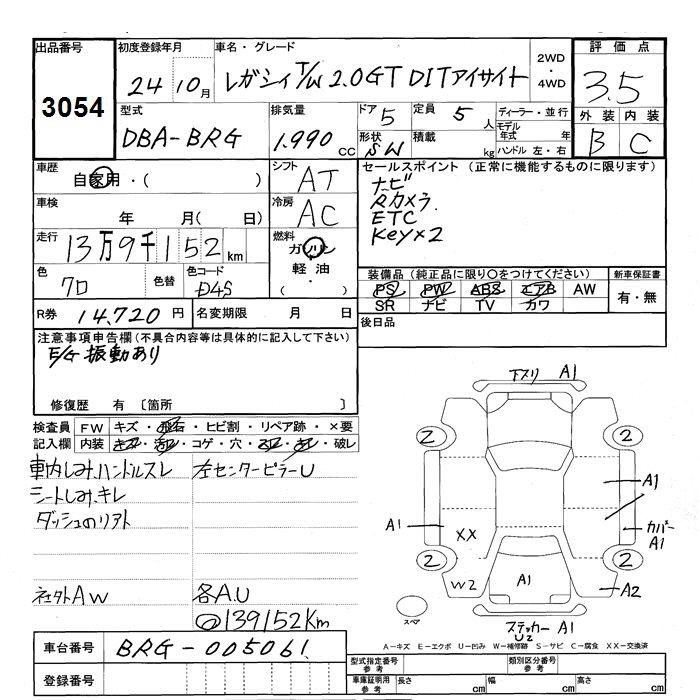 出品番号
3054
初度登録年月
24 10月
車名・グレード
レガシィ T/W 2.0GT DITアイサイト
2WD
・
4WD
評価点
3.5
外装 内装
B C
型式
DBA-BRG
排気量
1.990 cc
ドア 5
定員 5 人
形状 SW
積載 kg
ディーラー・並行
モデル年式 年
ハンドル 左・右
車歴
自家用・( )
シフト
AT
車検
年 月( 日)
冷房
AC
走行
13万9千152km
燃料
ガソリン
軽油
( ・ )
色
クロ
色替
色コード
D4S
R券 14,720円
名変期限 月 日
セールスポイント (正常に機能するものに限ります)
ナビ
Rカメラ
ETC
Key×2
装備品 (純正品に限り○をつけてください)
PS PW ABS エアB AW
SR ナビ TV カワ
新車保証書
有・無
後日品
注意事項申告欄(不具合内容等は具体的に記入して下さい)
E/G 振動あり
修復歴 有 〔箇所 〕
検査員記入欄
FW キズ・飛石・ヒビ割・リペア跡・×要
内装 ・コゲ・穴・ ・破レ
ハンドルスレ
シートしみ、キレ
左センターピラーU
社外AW
各A.U
139152Km
車台番号 BRG-005061
登録番号
下スリ A1
2
2
A1
A1
カバー
A1
XX
2
2
W2
A1
A2
スペア
ステッカー A1
U2
A-キズ E-エクボ U-凹み W-補修跡 S-サビ C-腐食 XX-交換済
型式指定番号
参考
類別区分番号
参考
車庫証明用
参考
長さ cm 幅 cm 高さ cm